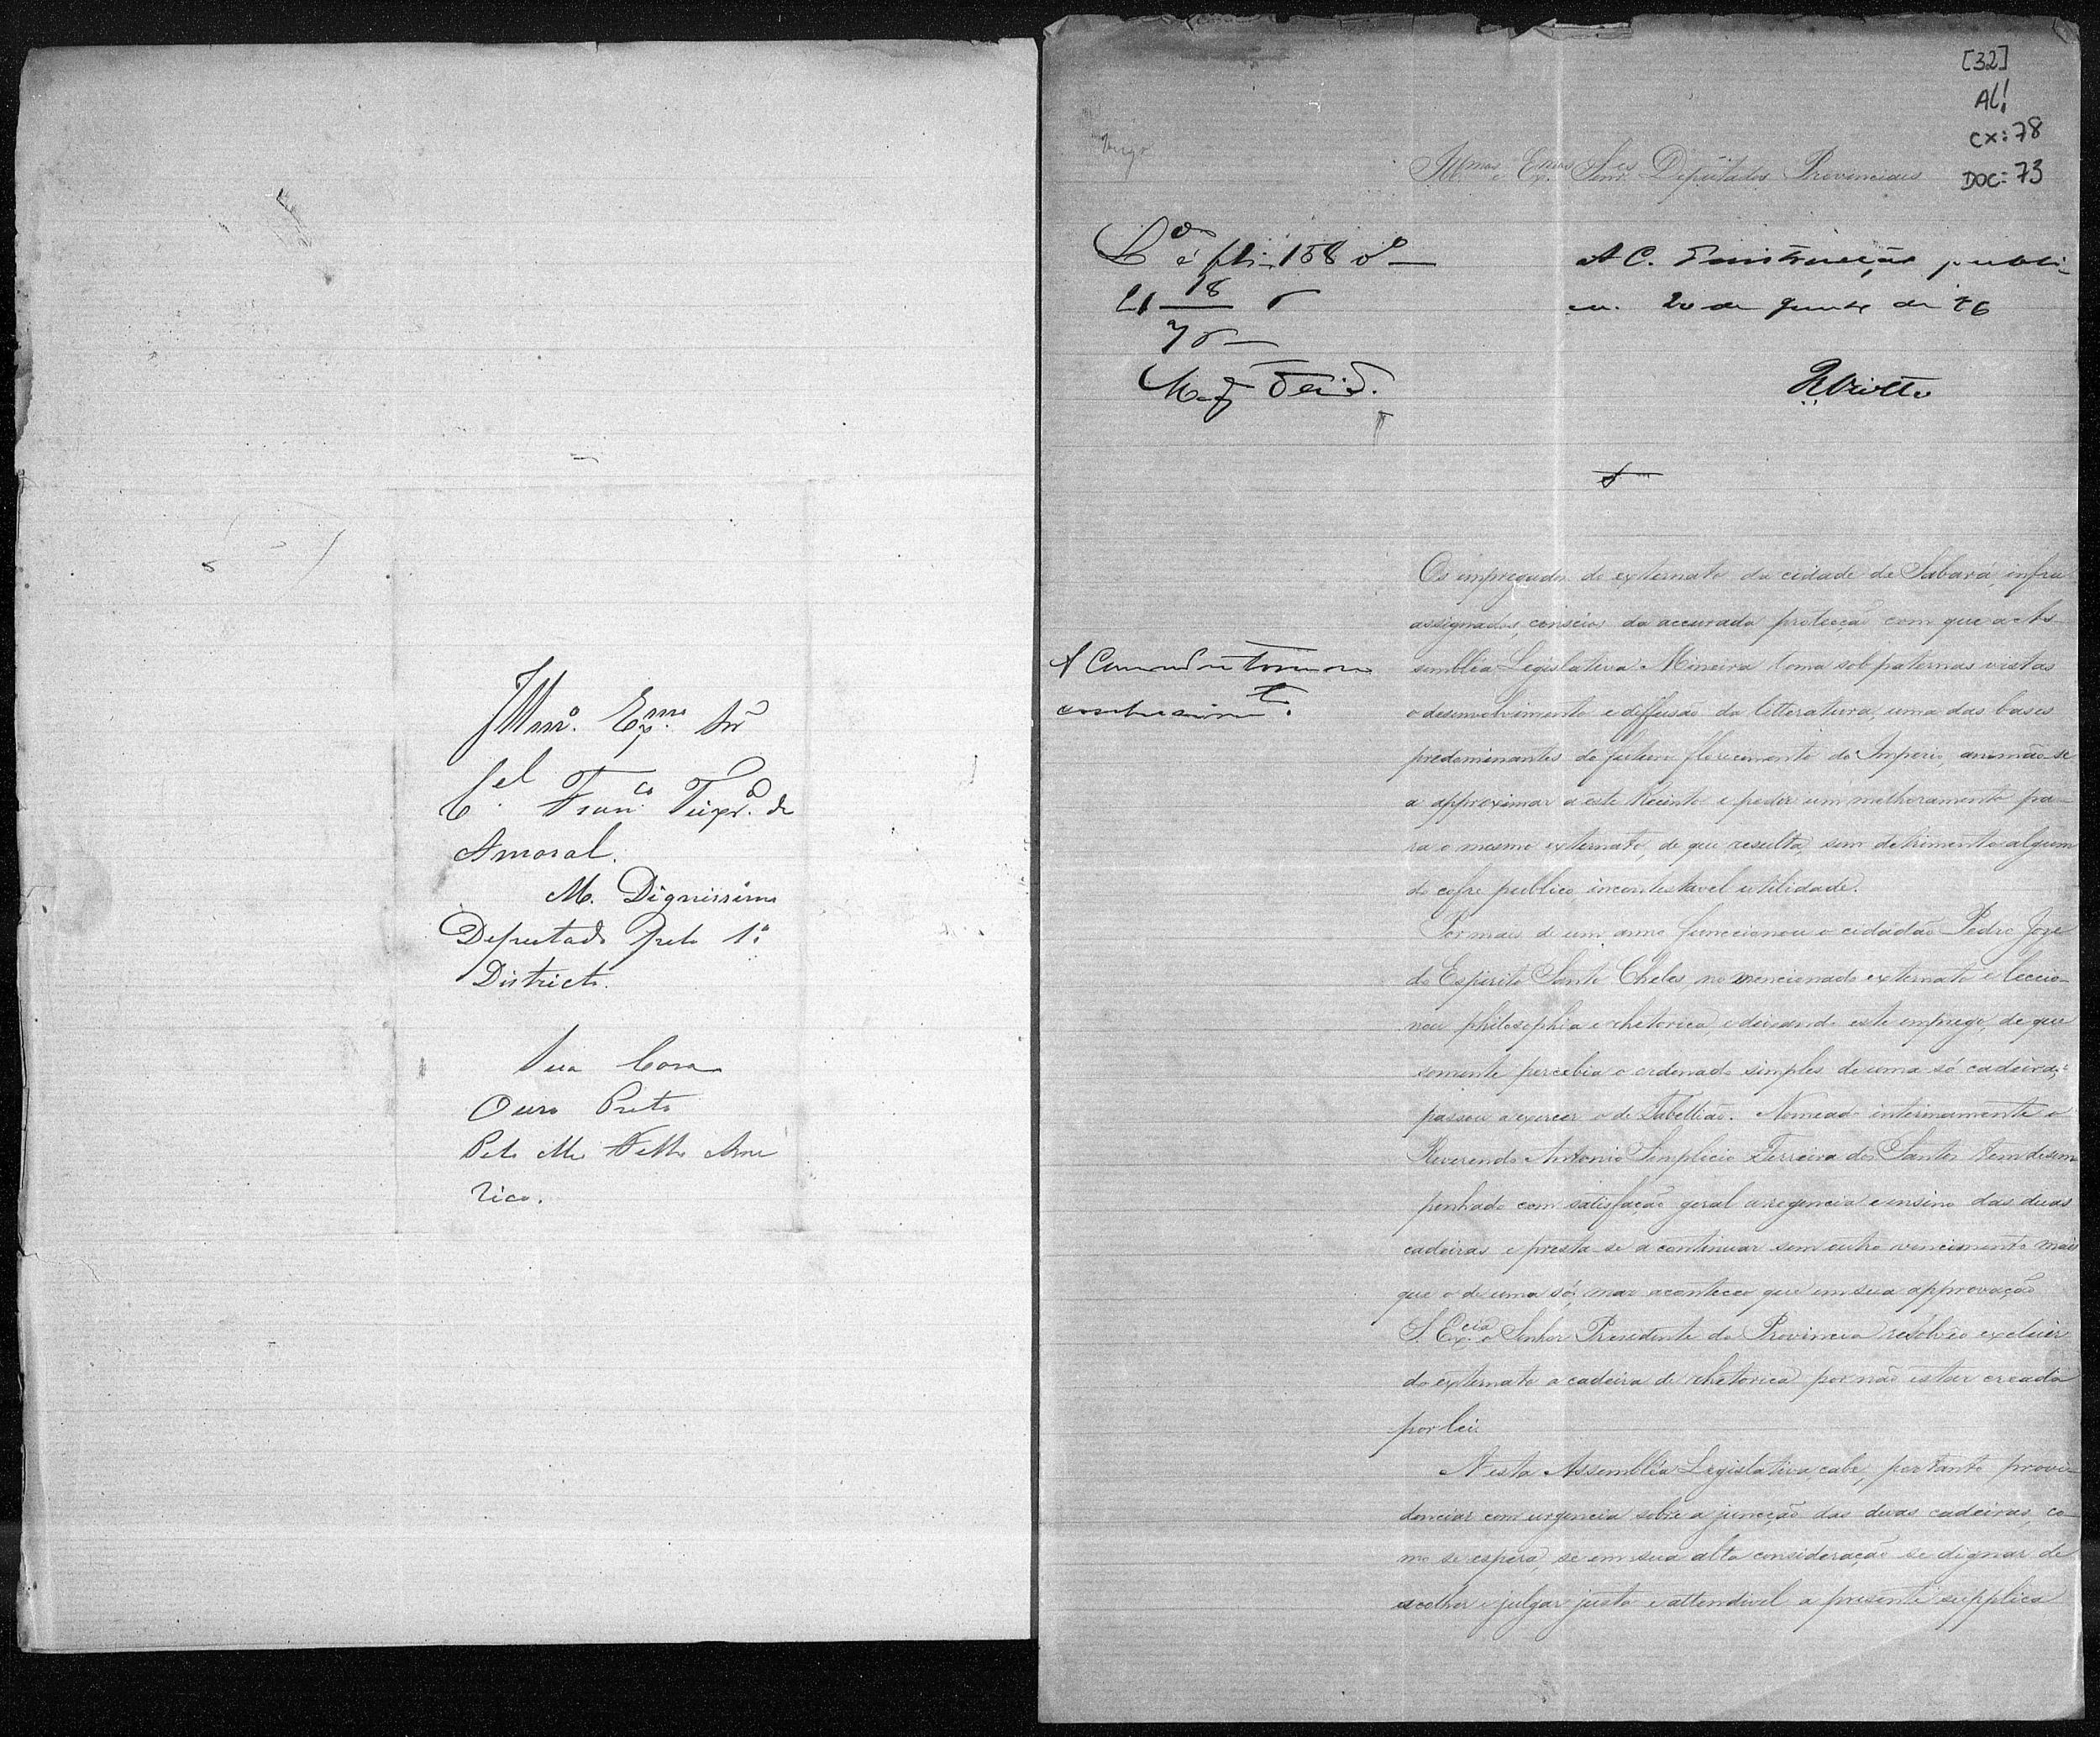 Illmo. Exmo. Snr
Cel. Franco. Teixra. de
Amaral.
M. Dignissimo
Deputado pelo 1º
Districto.
Sua Casa
Ouro Preto
[32]
AL!
CX: 78
DOC: 73
Illmos e Exmos Senres Deputados Provinciaes
A C. Instrucção publi-
ca. 20 de de 76
Os empregados do externato da cidade de Sabará, infra
assignados, conscios da accurada protecção com que a As
sembléa Legislativa Mineira toma sob paternas vistas
o desenvolvimento e diffusão da litteratura, uma das bases
predominantes do futuro florecimento do Imperio, animão-se
a approximar a este Recinto e pedir um melhoramento pa-
ra o mesmo externato, de que resulta, sem detrimento algum
do cofre publico incontestavel utilidade.
Por mais de um anno funccionou o cidadão Pedro Joze
do Espirito Santo Cheles, no mencionado externato e leccio-
nou philosophia e rhetorica, e deixando este emprego, de que
somente percebia o ordenado simples de uma só cadeira,
passou a exercer o de Tabellião. Nomeado interinamente o
Reverendo Antonio Simplicio Ferreira dos Santos tem desem
penhado com satisfação geral a regencia e ensino das duas
cadeiras e presta-se a continuar sem outro vencimento mais
que o de uma só; mas aconteceo que em sua approvação
S. Excia o Senhor Presidente da Provincia resolvêo excluir
do externato a cadeira de rhetorica por não estar creada
por lei.
A esta Assembléa Legislativa cabe, portanto provi-
denciar com urgencia sobre a juncção das duas cadeiras, co-
mo se espera, se em sua alta consideração se dignar de
acolher e julgar justa e attendivel a presente supplica